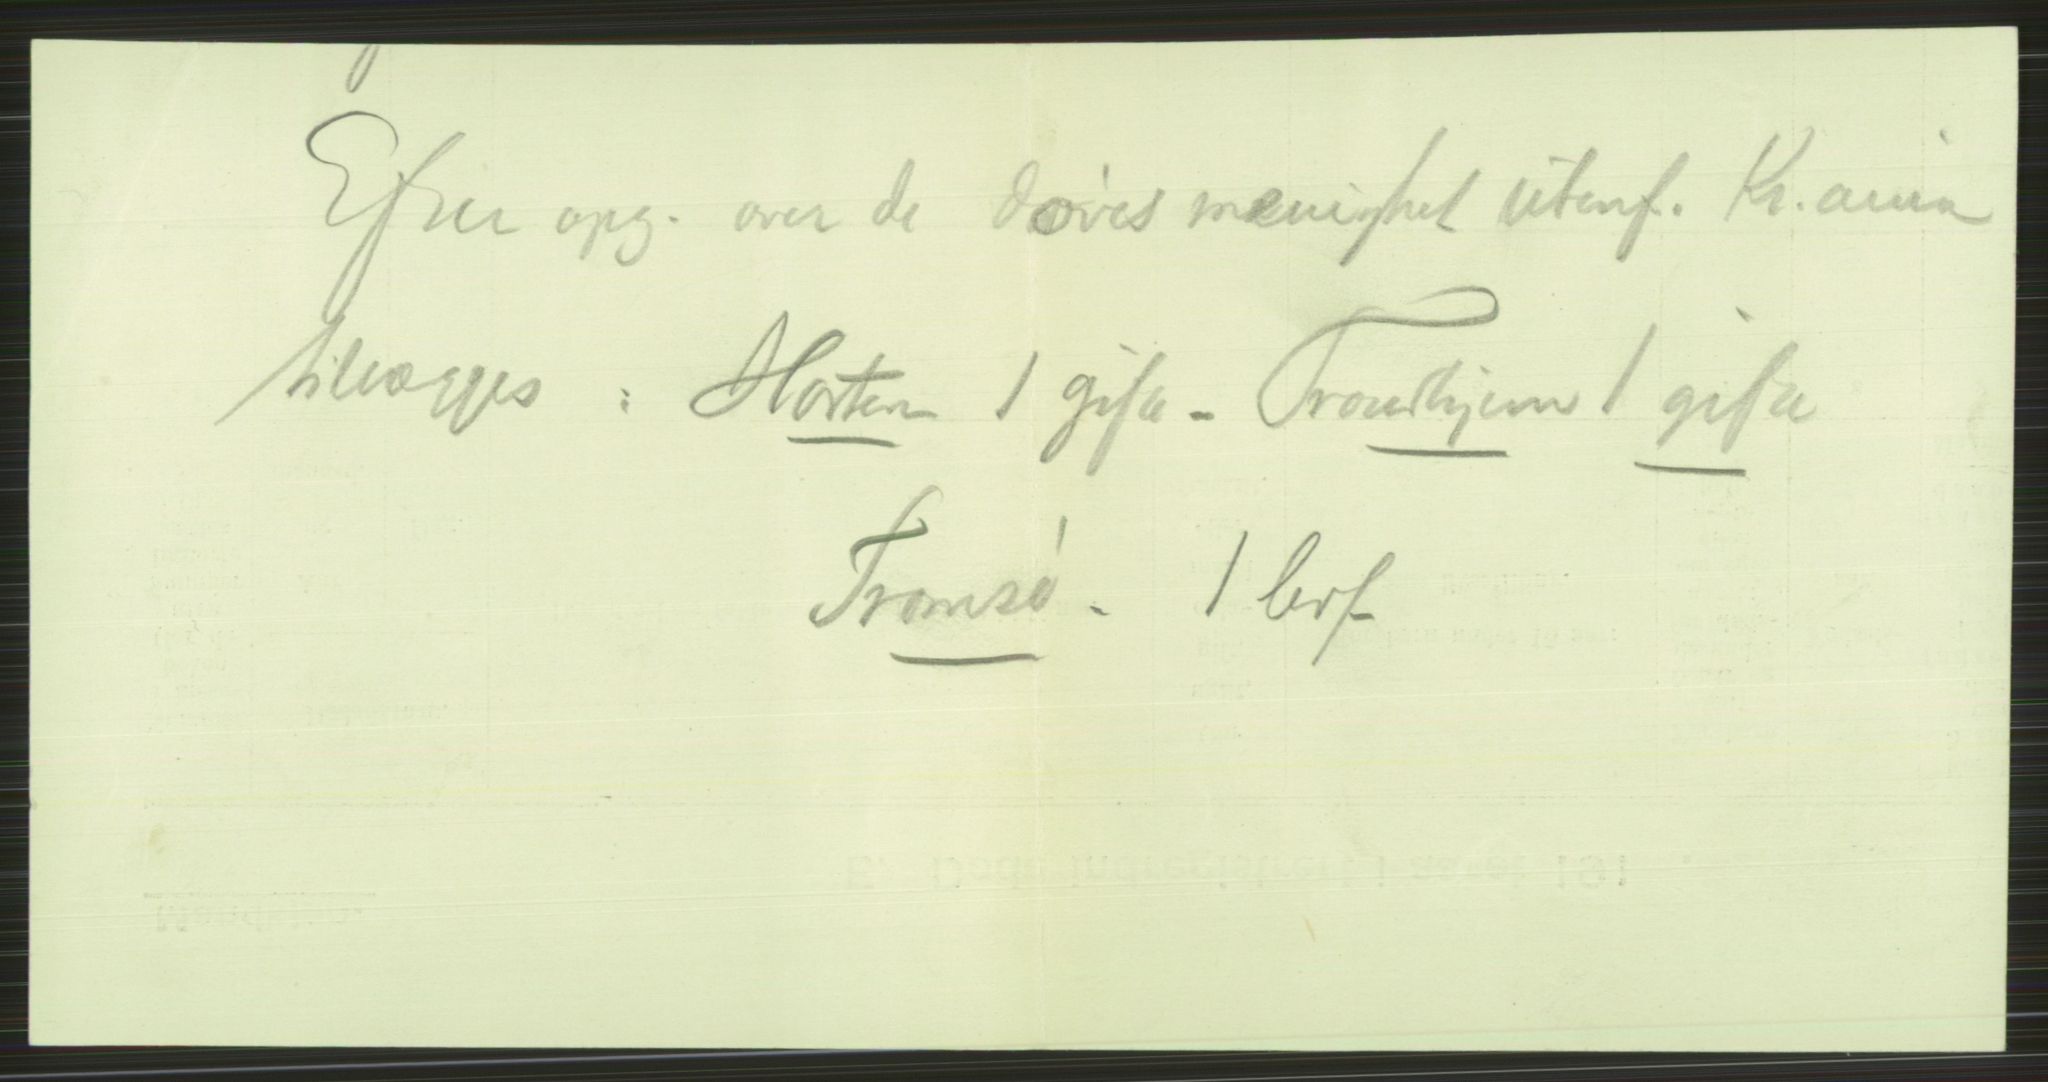 Efter opg. over de døves menighet utenf. Kr.ania
tillægges : Horten 1 gifte - Trondhjem 1 gifte
Tromsø - 1 brf